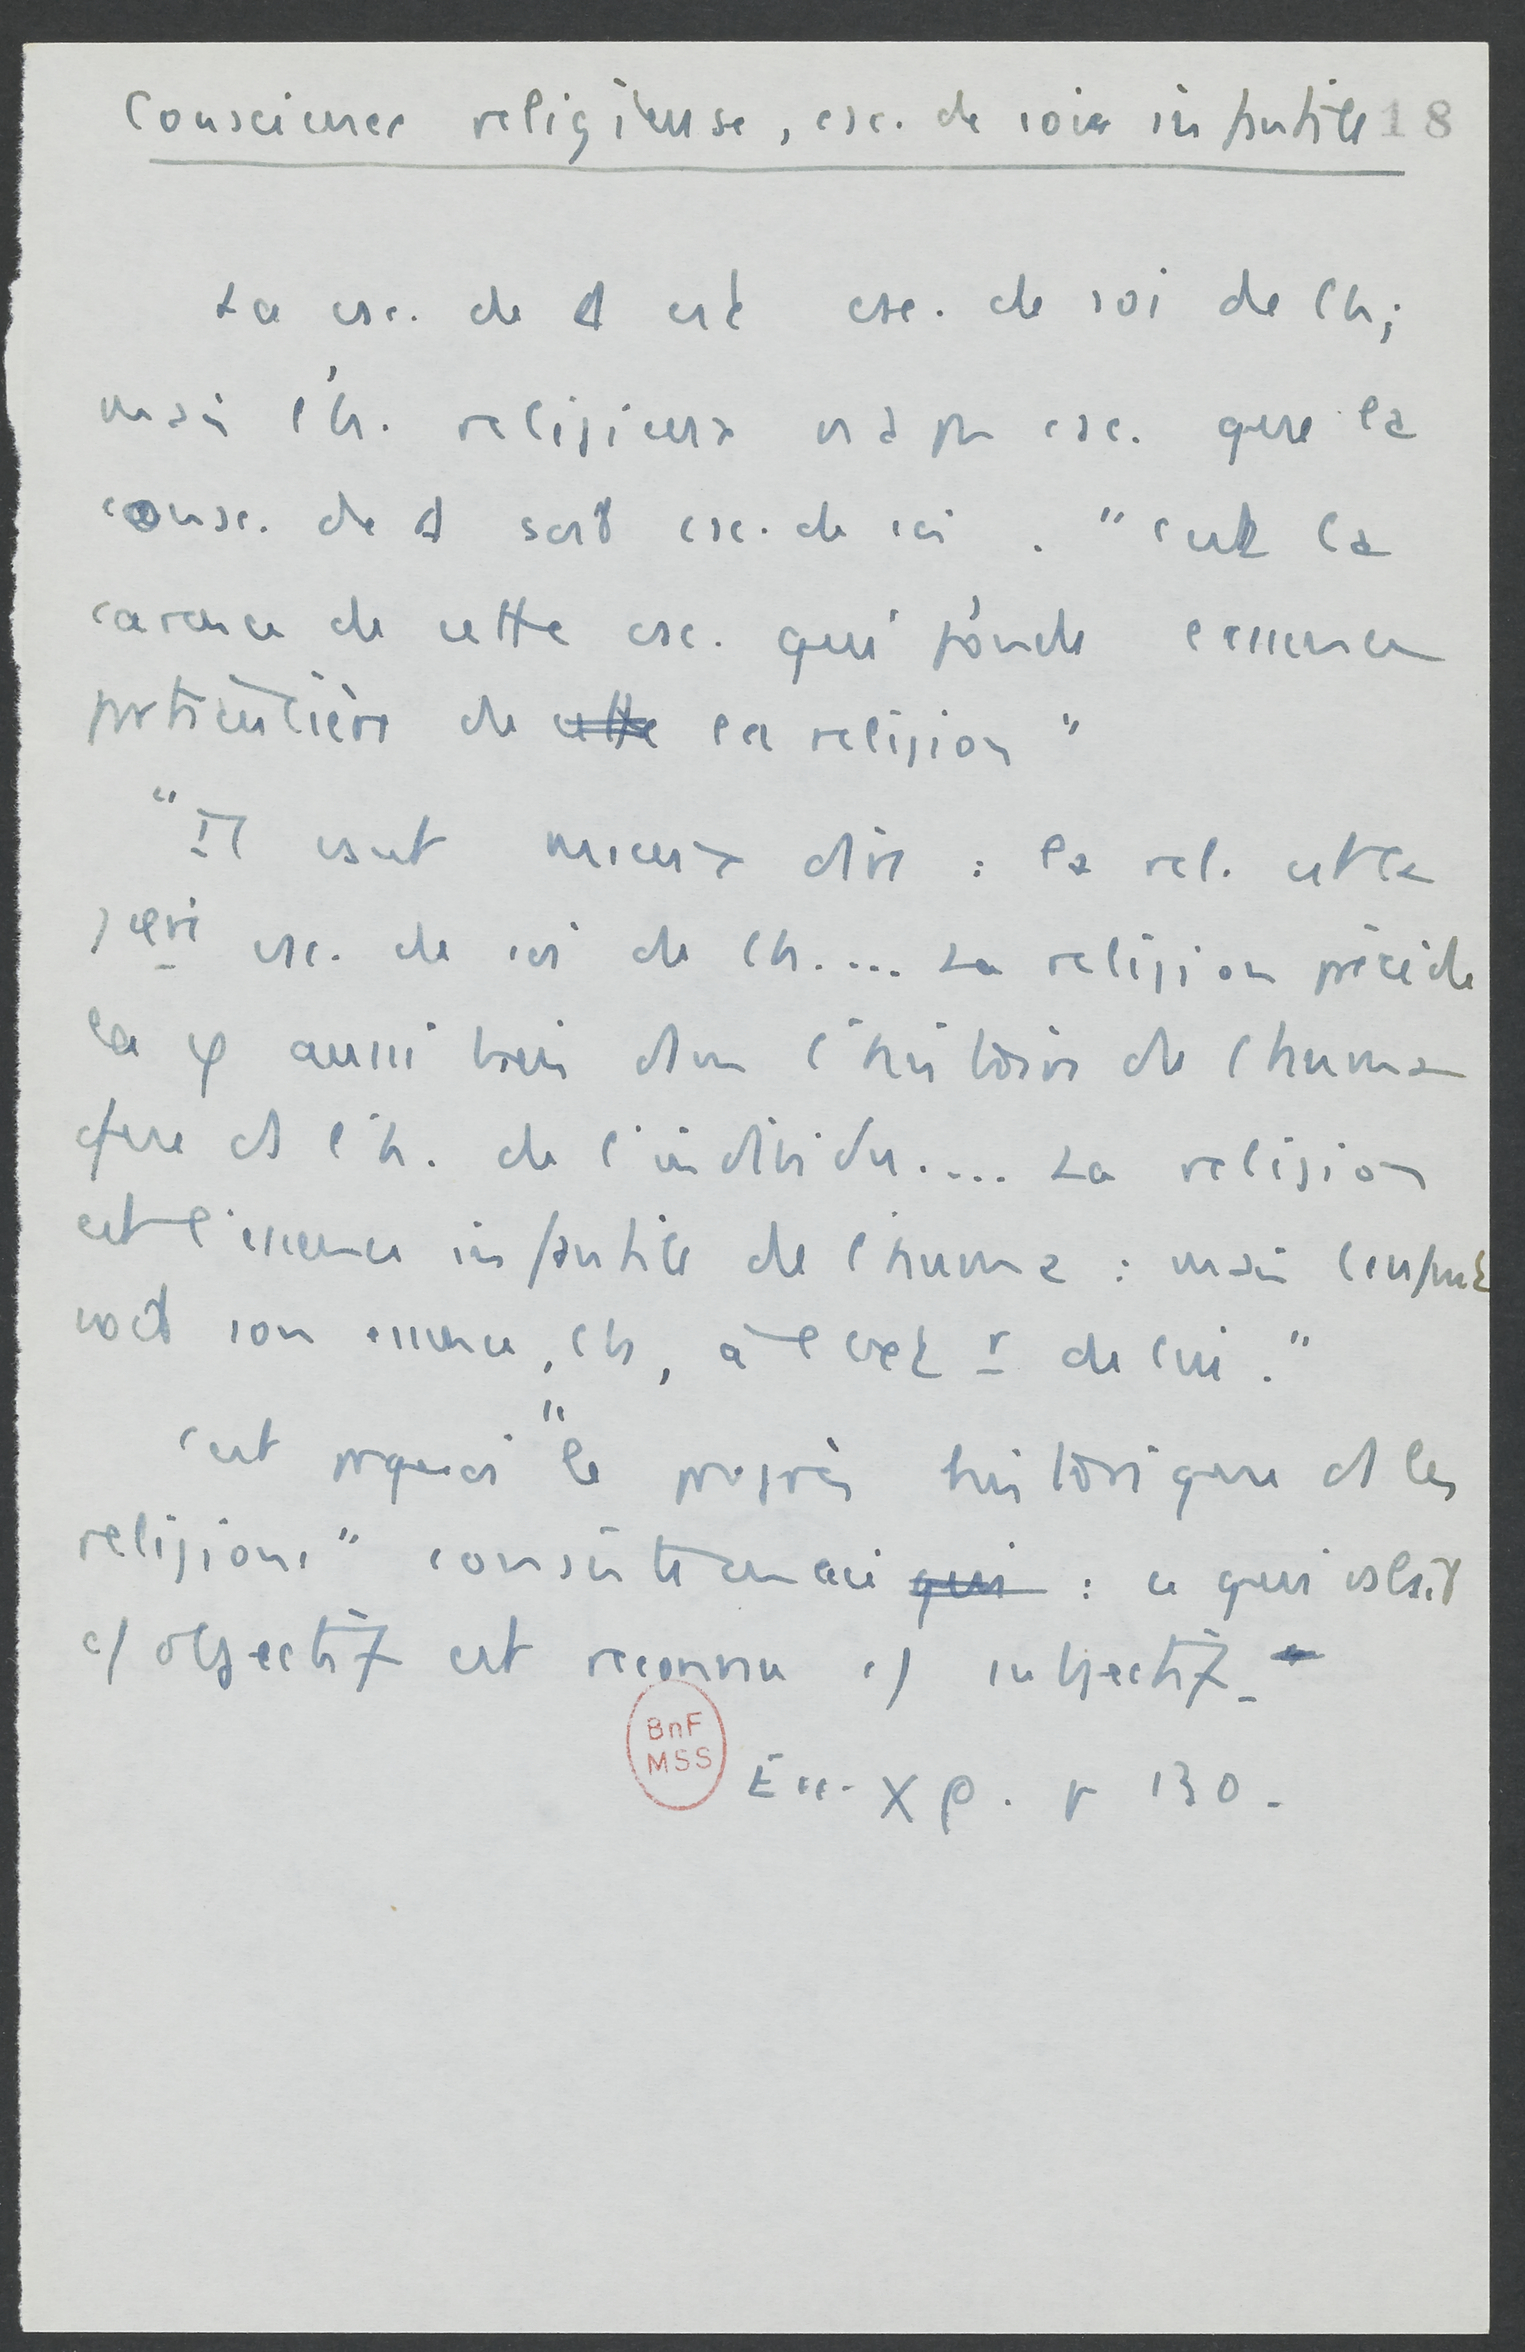 Conscience religieuse, csc. de soi infantile 18
La csc. de Δ est csc. de soi de l'h;
mais l'h. religieux n'a pas csc. que la
consc. de Δ soit csc. de soi. "C'est la
carence de cette csc. qui fonde l'essence
particulière de cette la religion"
"Il vaut mieux dire : la rel. est la
1ère csc. de soi de l'h.... La religion précède
la φ aussi bien dans l'histoire de l'huma
que ds l'h. de l'individu.... La religion
est l'essence infantile de l'huma : mais l'enfant
voit son essence, l'h, à l'ext r de lui."
C'est pquoi "le progrès historique ds les
religions" consiste en ceci qui : ce qui valait
c/ objectif est reconnu c/ subjectif.
Ess. Xρ. p 130.
BnF
MSS